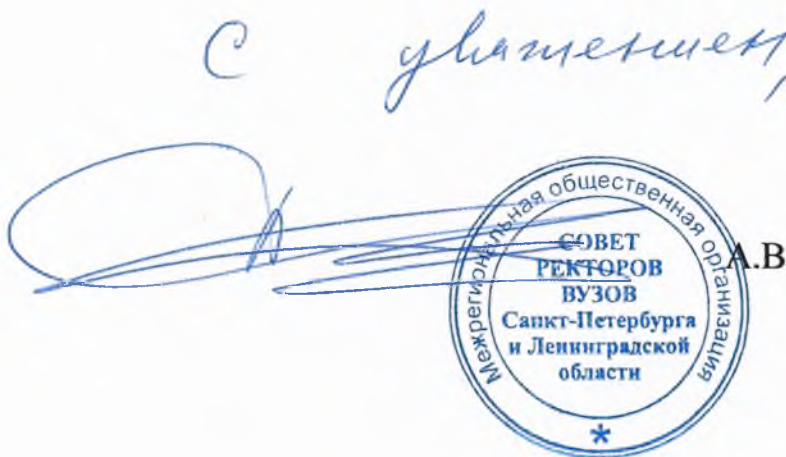 С уважением,
Межрегиональная общественная организация
СОВЕТ
РЕКТОРОВ
ВУЗОВ
Санкт-Петербурга
и Ленинградской
области
*
А.В